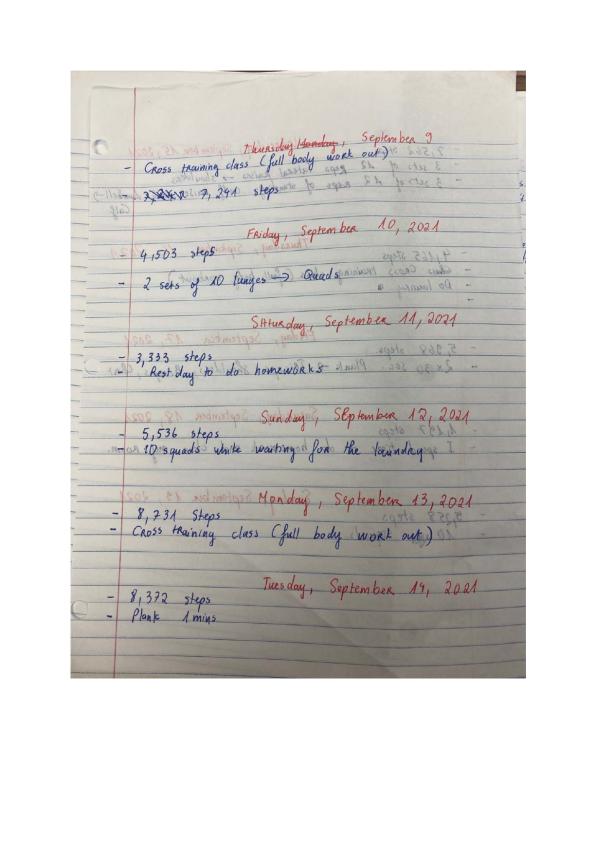 Thursday Monday, September 9
- Cross training class (full body work out)
- 7,291 steps
Friday, September 10, 2021
4,503 steps
- 2 sets of 10 lunges → Quads
Saturday, September 11, 2021
- 3,333 steps
- Rest day to do homeworks
Sunday, September 12, 2021
- 5,536 steps
- 10 squads while waiting for the laundry
Monday, September 13, 2021
- 8,731 Steps
- Cross training class (full body work out)
Tuesday, September 14, 2021
- 8,372 steps
- Plank 1 mins